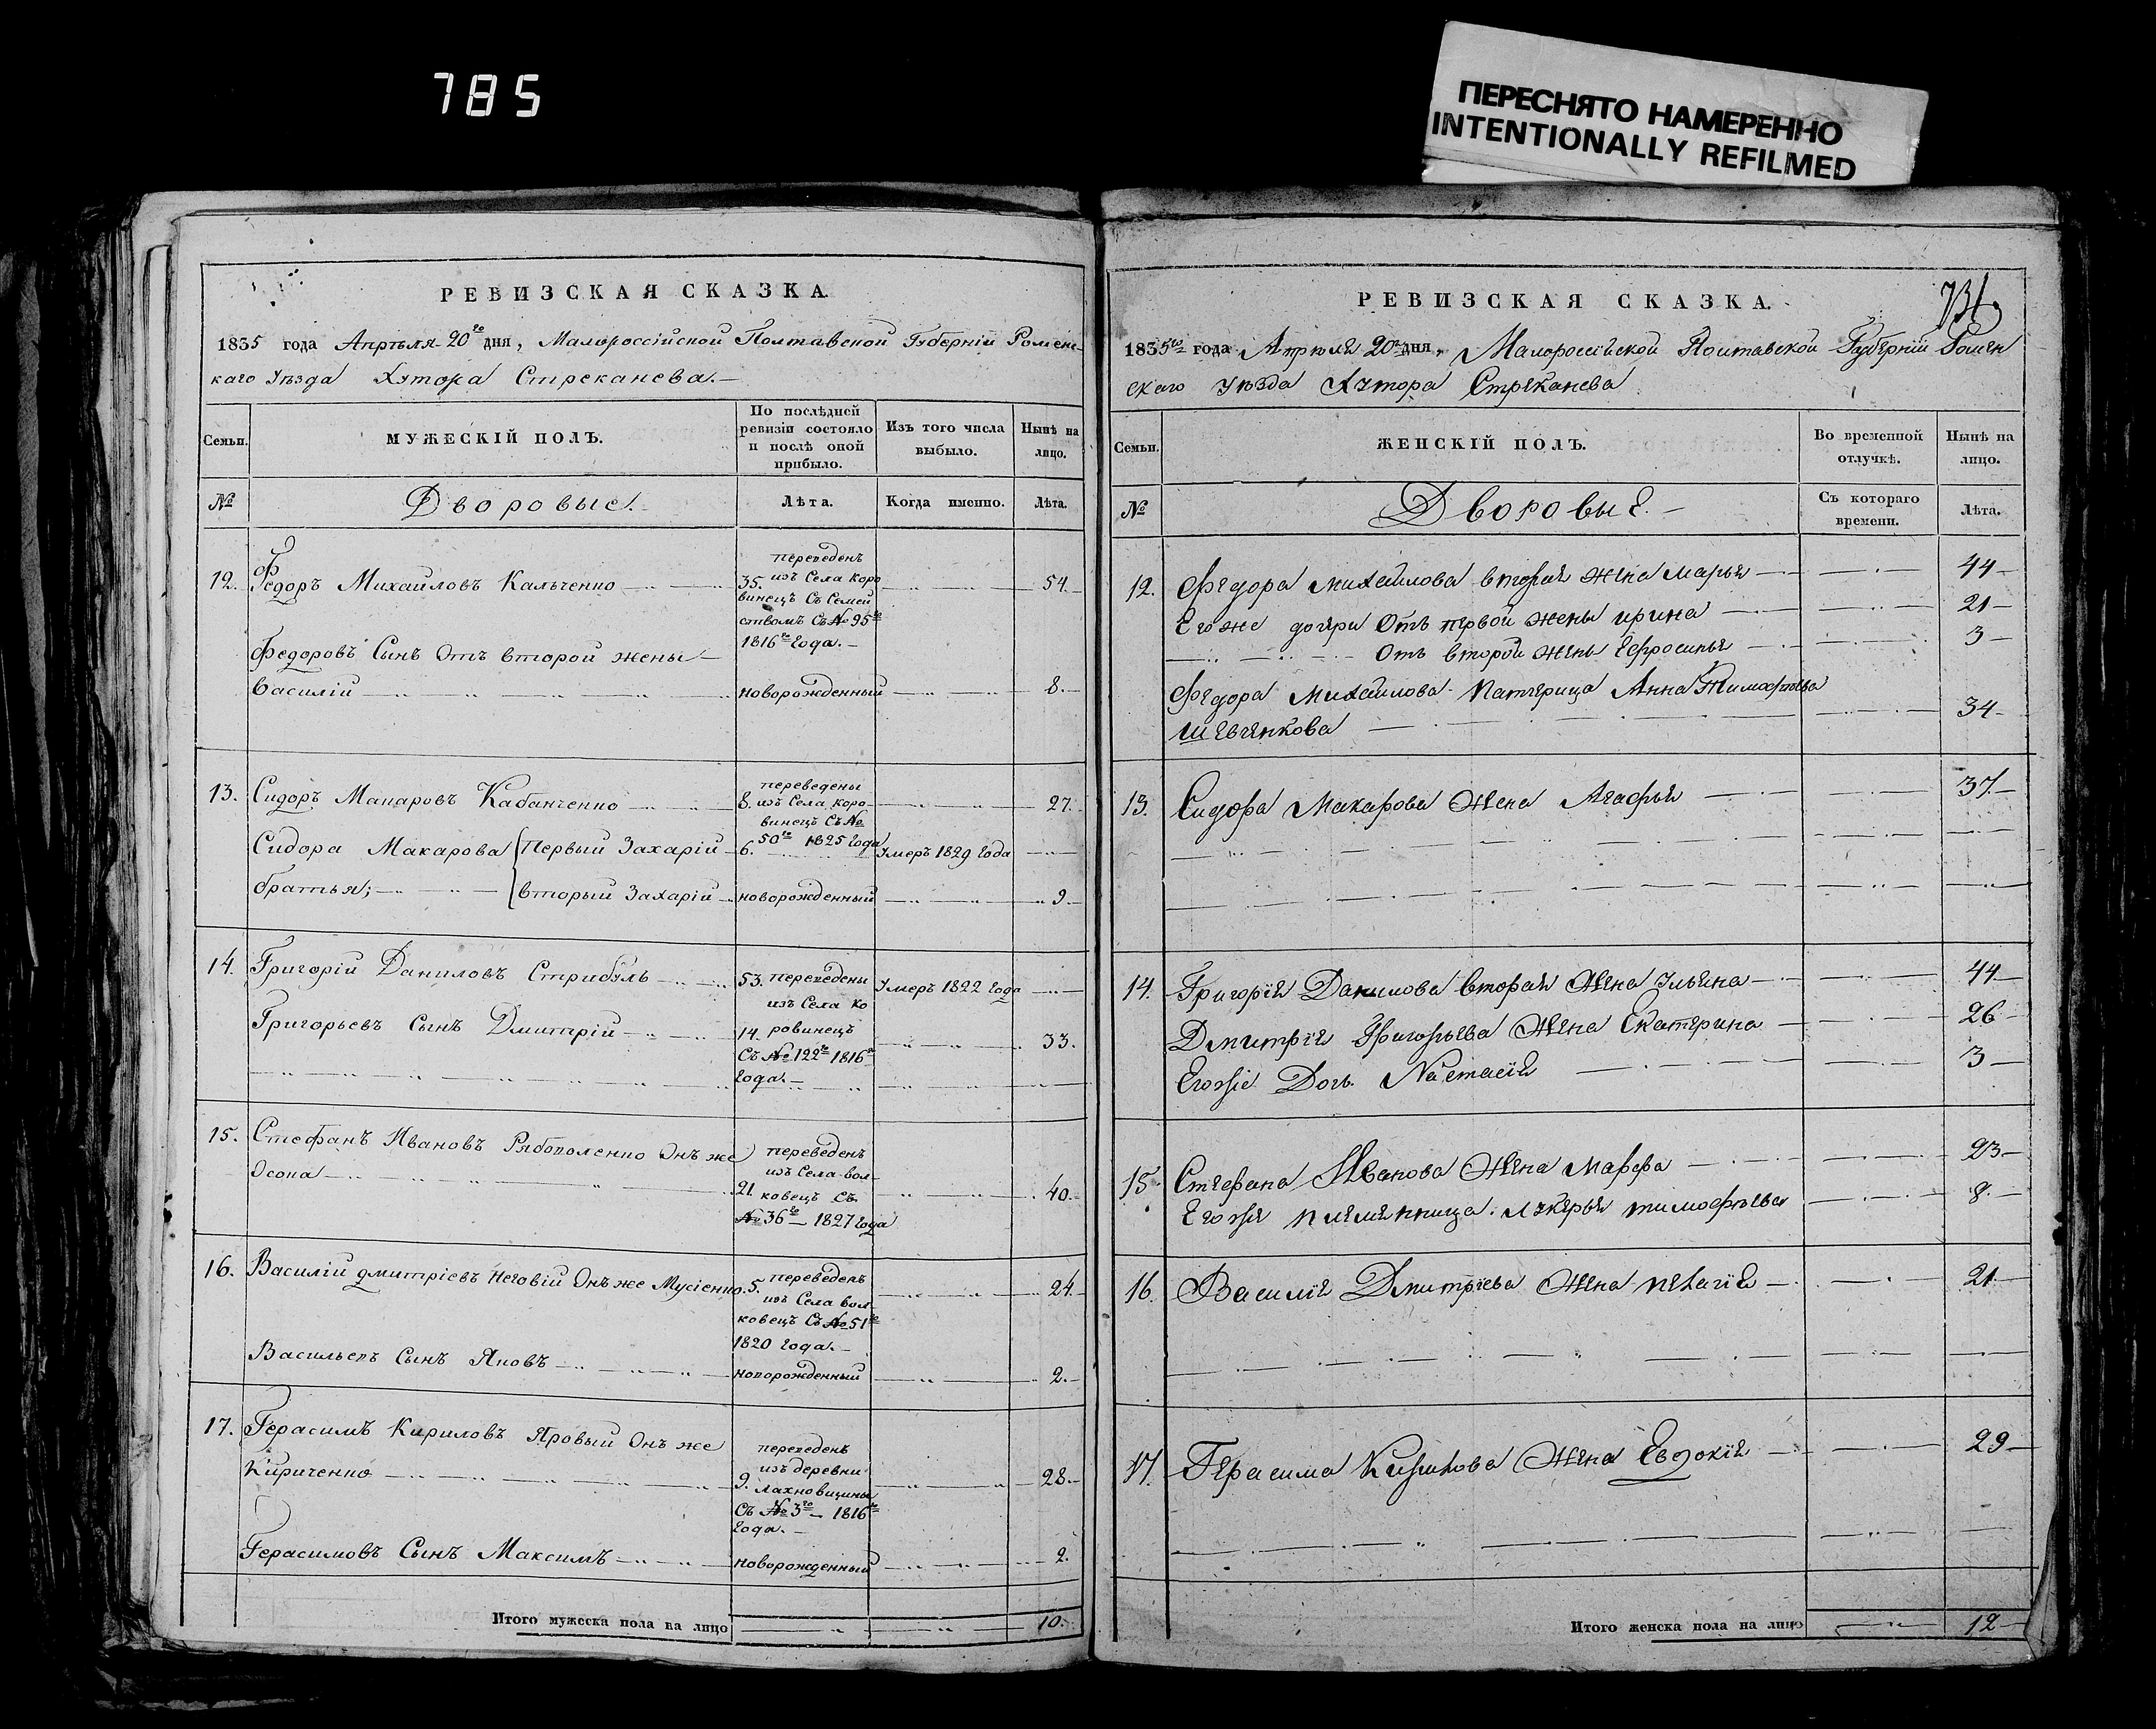 785
ПЕРЕСНЯТО НАМЕРЕННО
INTENTIONALLY REFILMED
РЕВИЗСКАЯ СКАЗКА.
1835 года Апрѣля 20го дня, Малороссійской Полтавской Губерніи Роменс-
каго Уѣзда Хутора Стреканева.
Семьи.
МУЖЕСКІЙ ПОЛЪ.
По послѣдней ревизіи состояло и послѣ оной прибыло.
Изъ того числа выбыло.
Нынѣ на лицо.
№
Дворовые.
Лѣта.
Когда именно.
Лѣта.
12. Федоръ Михайловъ Кальченко 35. переведенъ изъ Села Коро 54.
винецъ съ Семей
ствомъ съ № 95го
1816го Года.
Федоровъ Сынъ Отъ второй жены
Василій новорожденный 8.
13. Сидоръ Макаровъ Кабанченко 8. переведены изъ Села Коро 27.
винецъ Съ №
50го 1825 Года
Сидора Макарова Первый Захарій 6. Умеръ 1829 Года
братья; вторый Захарій новорожденный 9.
14. Григорій Даниловъ Стрибуль 53. переведены Умеръ 1822 Года
изъ Села Ко
Григорьевъ Сынъ Дмитрій 14. ровинецъ 33.
Съ № 122го 1816го
Года.
15. Стефанъ Ивановъ Рябополенко Онъ же переведенъ
Осопа 21. изъ Села вол- 40.
ковецъ Съ
№ 36го 1827 Года
16. Василій Дмитріевъ Неговій Онъ же Мусіенко 5. переведенъ 24.
изъ Села вол
ковецъ Съ № 51го
1820 Года.
Васильевъ Сынъ Яковъ новорожденный 2.
17. Герасимъ Кириловъ Яровый Онъ же переведенъ
Кириченко 9. изъ деревни 28.
Лахновщины
Съ № 3го 1816го
Года.
Герасимовъ Сынъ Максимъ новорожденный 2.
Итого мужеска пола на лицо 10.
731.
РЕВИЗСКАЯ СКАЗКА.
1835го года Апрѣля 20го дня, Малороссійской Полтавской Губерніи Ромен
скаго Уѣзда Хутора Стреканева
Семьи.
ЖЕНСКІЙ ПОЛЪ.
Во временной отлучкѣ.
Нынѣ на лицо.
№
Дворовые.
Съ котораго времени.
Лѣта.
12. Федора Михайлова вторая жена Марья 44
Его же дочери Отъ первой жены Ирина 21
Отъ второй жены Ефросинья 3
Федора Михайлова Патчерица Анна Тимофѣева
Шевченкова 34
13. Сидора Макарова Жена Агафья 37
14. Григорія Данилова вторая Жена Ульяна 44
Дмитрія Григорьева Жена Екатерина 26
Егоже Дочь Настасія 3
15. Стефана Иванова Жена Марфа 23
Егоже племянница Лукерья Тимофѣева 8
16. Василія Дмитріева Жена Пелагія 21
17. Герасима Кирилова Жена Евдокія 29
Итого женска пола на лицо 12